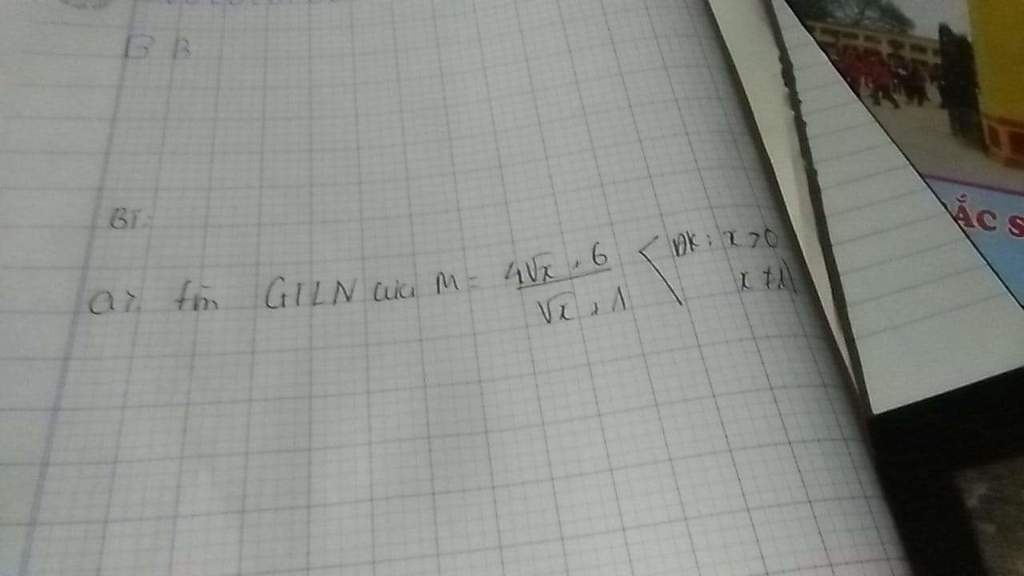 B B
BT:
a). Tìm GTLN của M = \frac{4\sqrt{x} + 6}{\sqrt{x} + 1} < ĐK: x > 0
x ≠ 1
ẮC S